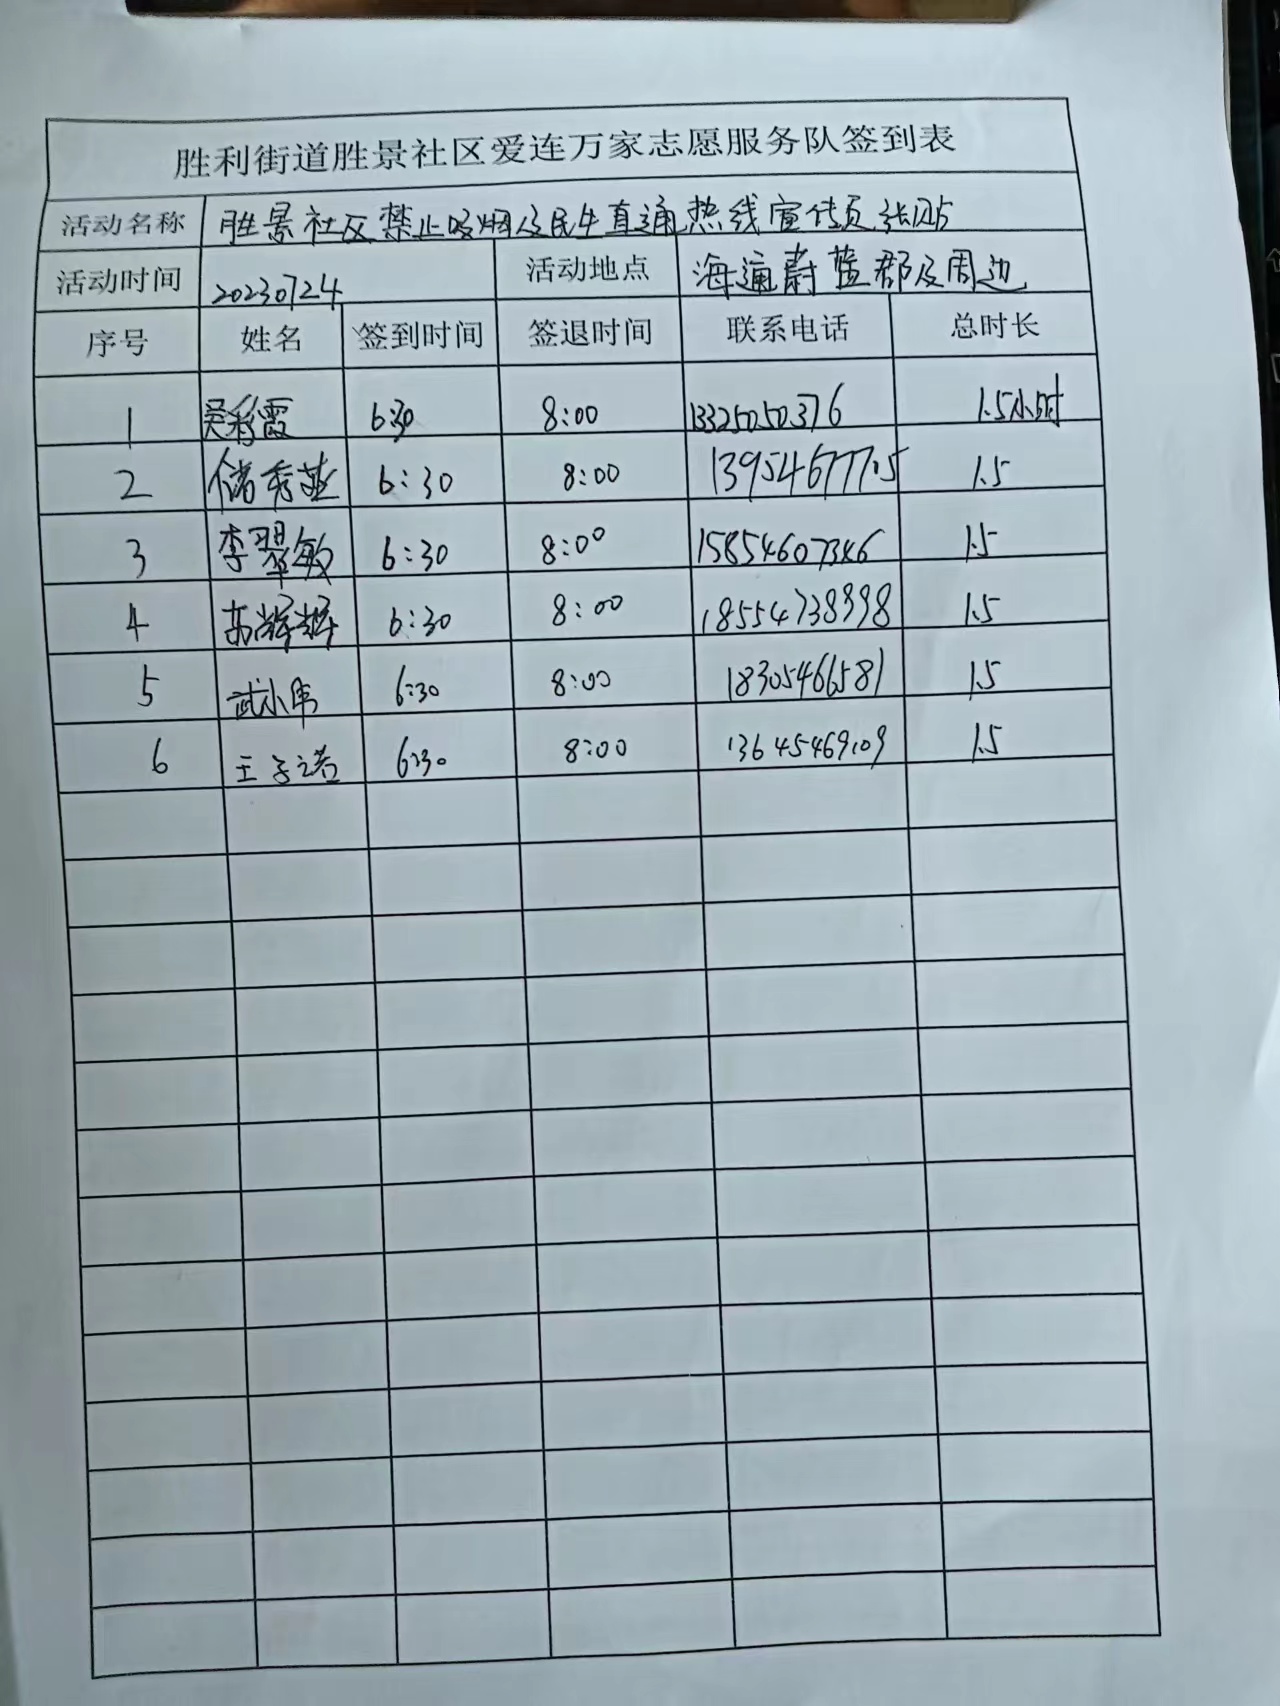 胜利街道胜景社区爱连万家志愿服务队签到表
活动名称 胜景社区禁止吸烟及民生直通热线宣传页张贴
活动时间 20230724 活动地点 海通蔚蓝郡及周边
序号 姓名 签到时间 签退时间 联系电话 总时长
1 吴彩霞 6:30 8:00 13325050376 1.5小时
2 储秀莲 6:30 8:00 13954677715 1.5
3 李翠敏 6:30 8:00 15854607346 1.5
4 辉辉 6:30 8:00 18554738998 1.5
5 武小伟 6:30 8:00 18305466581 1.5
6 王子诺 6:30 8:00 13645469109 1.5